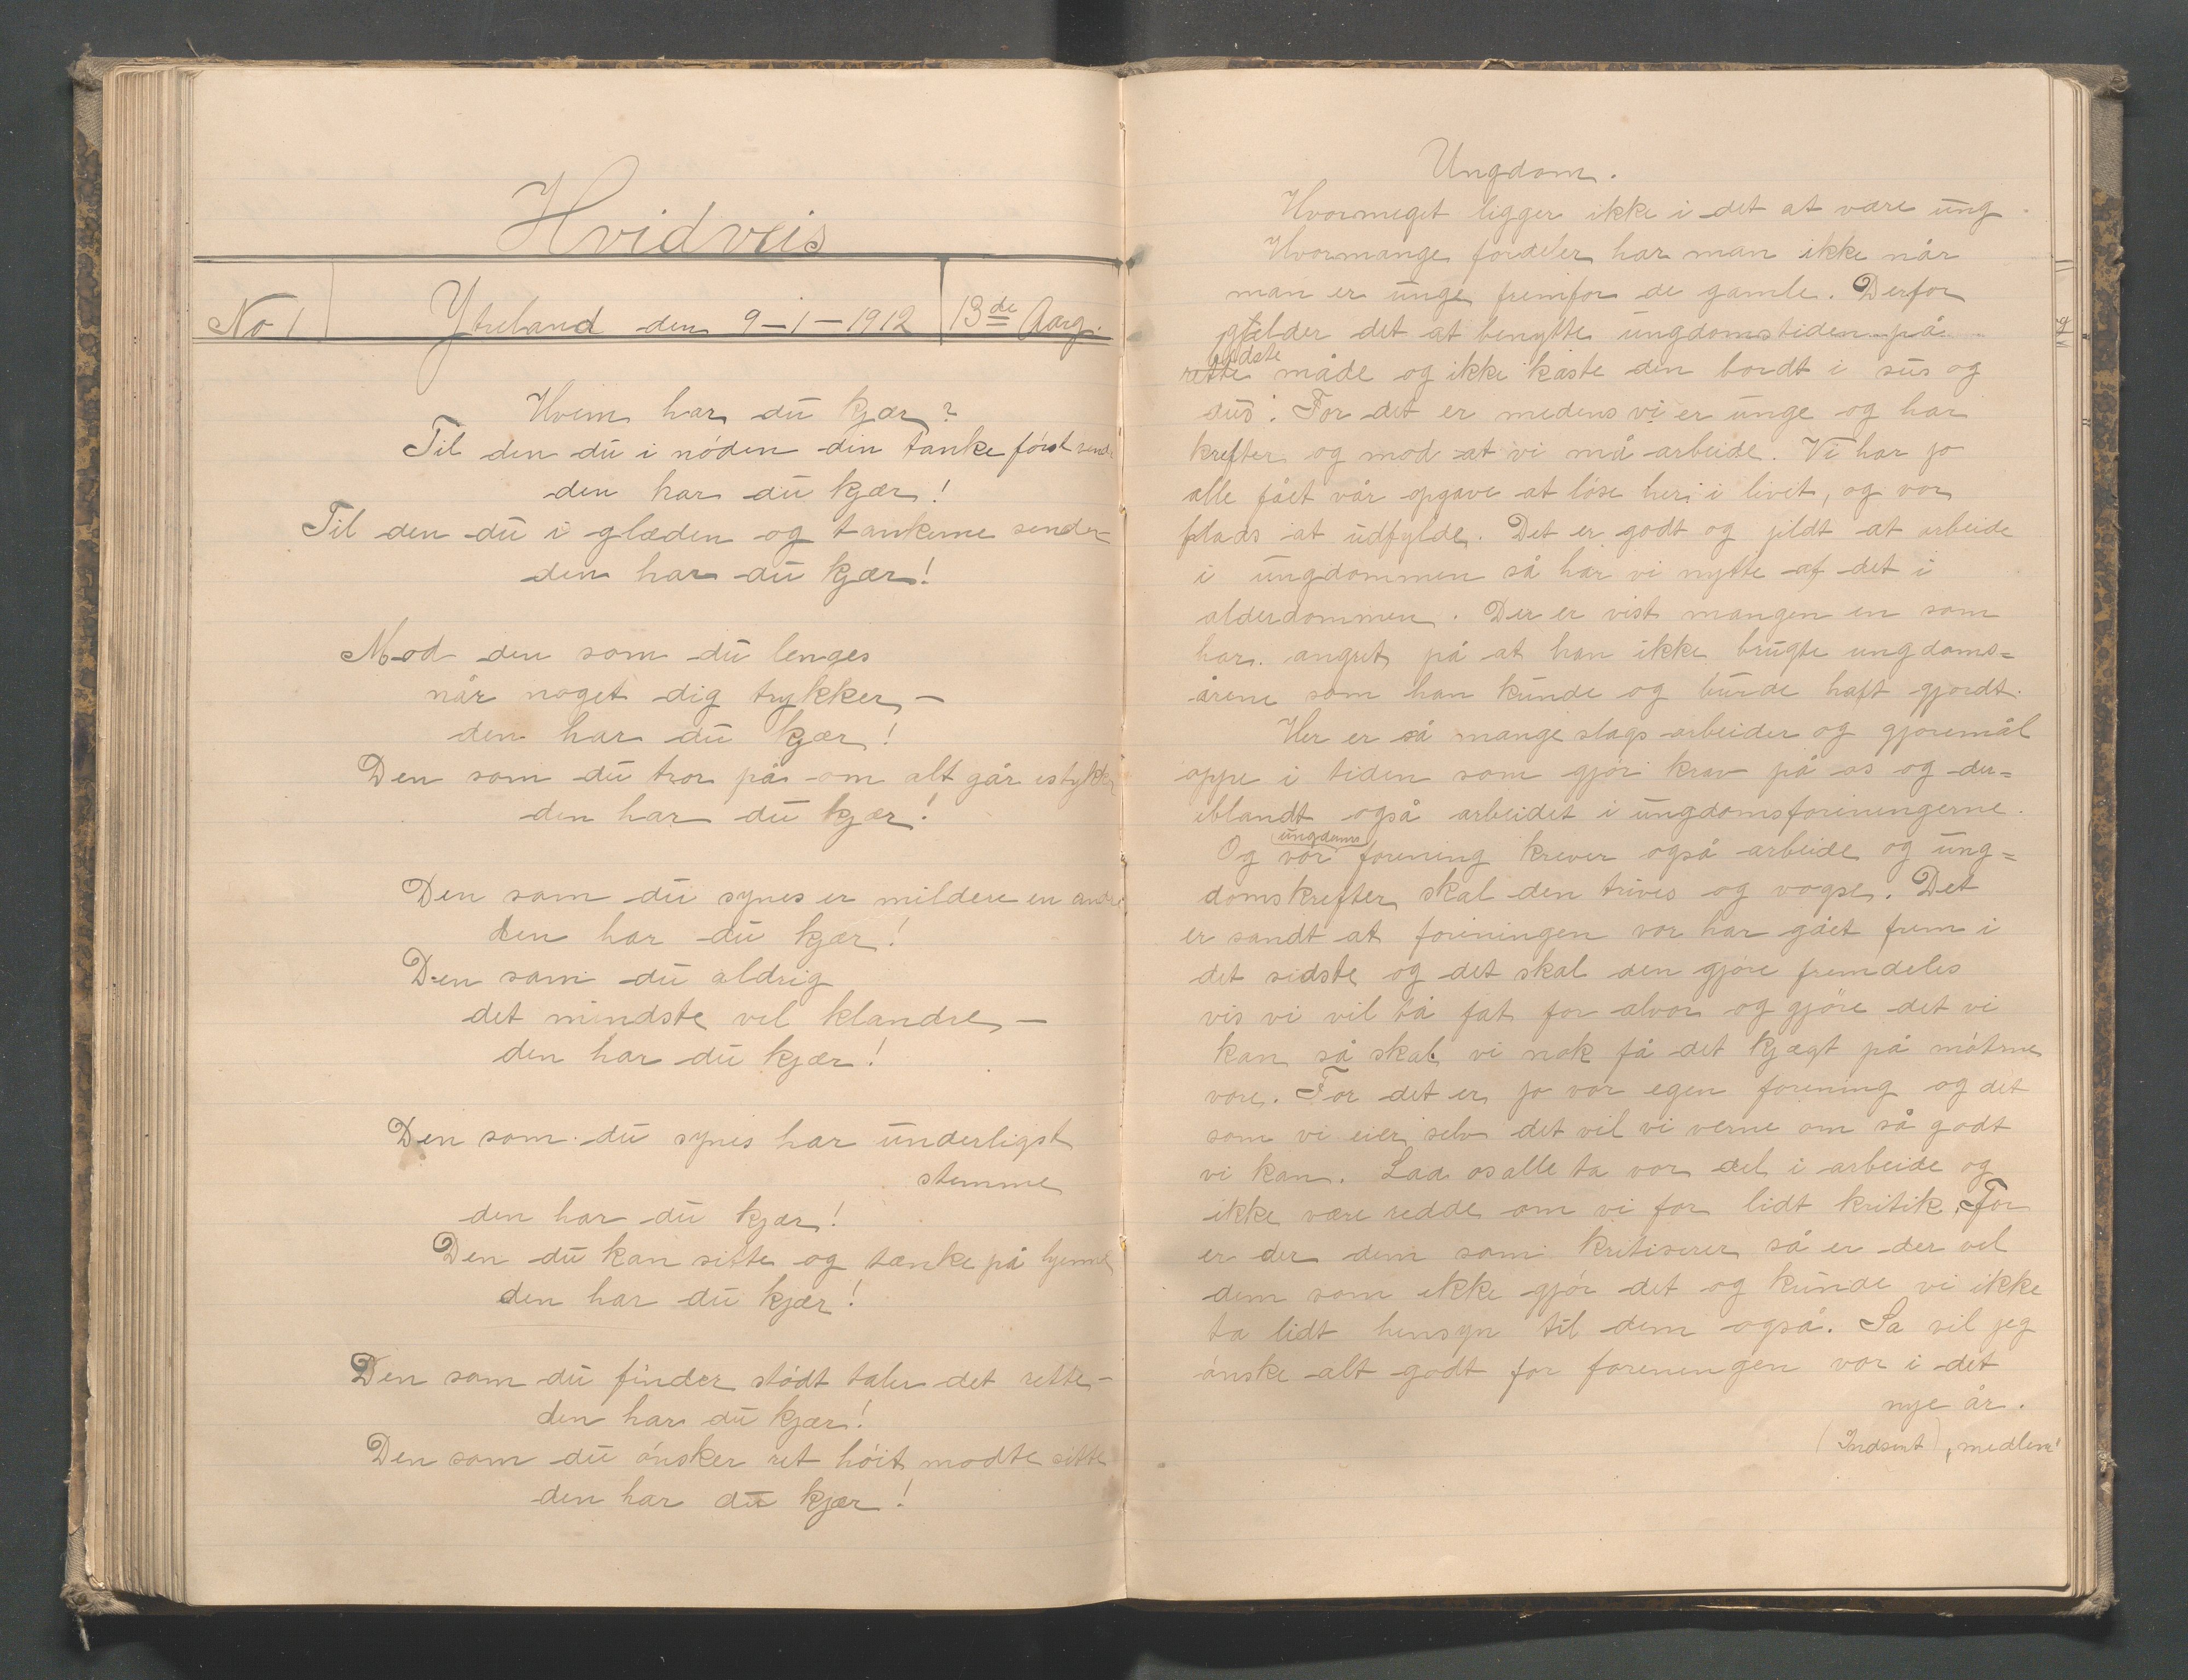 Hvidveis
No 1 Ytreland den 9-1-1912 13de Aarg.
Hvem har du kjær?
Til den du i nöden din tanke först vend
den har du kjær!
Til den du i glæden og tankerne sender
den har du kjær!
Mod den som du lenges
når noget dig trykker, -
den har du kjær!
Den som du tror på om alt går istykk
den har du kjær!
Den som du synes er mildere en andre
den har du kjær!
Den som du aldrig
det mindste vil klandre, -
den har du kjær!
Den som du synes har underligst
stemme
den har du kjær!
Den du kan sitte og tænke på hjemme
den har du kjær!
Den som du finder stödt taler det rette -
den har du kjær!
Den som du önsker ret höit modte sitte
den har du kjær!
Ungdom.
Hvormeget ligger ikke i det at være ung.
Hvormange fordeler har man ikke når
man er unge fremfor de gamle. Derfor
gjælder det at benytte ungdomstiden på
bedste
rette måde og ikke kaste den bordt i sus og
dus. For det er medens vi er unge og har
krefter og mod at vi må arbeide. Vi har jo
alle fået vår opgave at löse her i livet, og vor
plads at udfylde. Det er godt og jildt at arbeide
i ungdommen så har vi nytte af det i
alderdommen. Der er vist mangen en som
har angret på at han ikke brugte ungdoms=
årene som han kunde og burde haft gjordt.
Her er så mange slags arbeider og gjoremål
oppe i tiden som gjör krav på os og der=
iblandt også arbeidet i ungdomsforeningerne.
ungdoms
Og vor forening krever også arbeide og ung=
domskrefter skal den trives og vogse. Det
er sandt at foreningen vor har gået frem i
det sidste og det skal den gjöre fremdeles
vis vi vil tå fat for alvor og gjöre det vi
kan så skal vi nok få det kjægt på mötrne
vore. For det er jo vor egen forening og det
som vi eier selv det vil vi verne om så godt
vi kan. Lad os alle ta vor del i arbeide og
ikke være redde om vi for lidt kritik. For
er der dem som kritiserer så er der vel
dem som ikke gjör det og kunde vi ikke
ta lidt hensyn til dem også. Sa vil jeg
önske alt godt for foreningen vor i det
nye år.
(Indsent) "medlem"